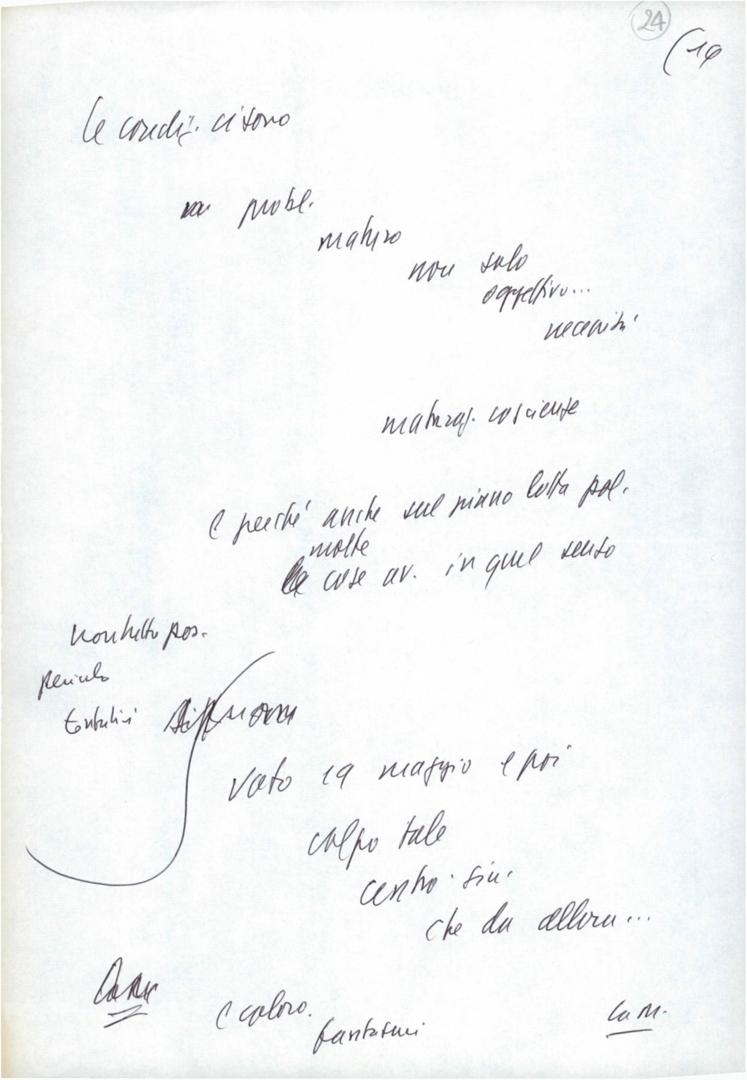 24
(14
le condiz. ci sono
probl.
maturo
non solo
oggettivo...
necessità
maturaz. cosciente
e perché anche sul piano lotta pol.
molte
cose av. in quel senso
pos.
pericolo
tentativi
voto 19 maggio e poi
colpo tale
centro-sin.
che da allora...
e coloro.
fantasmi
La M.